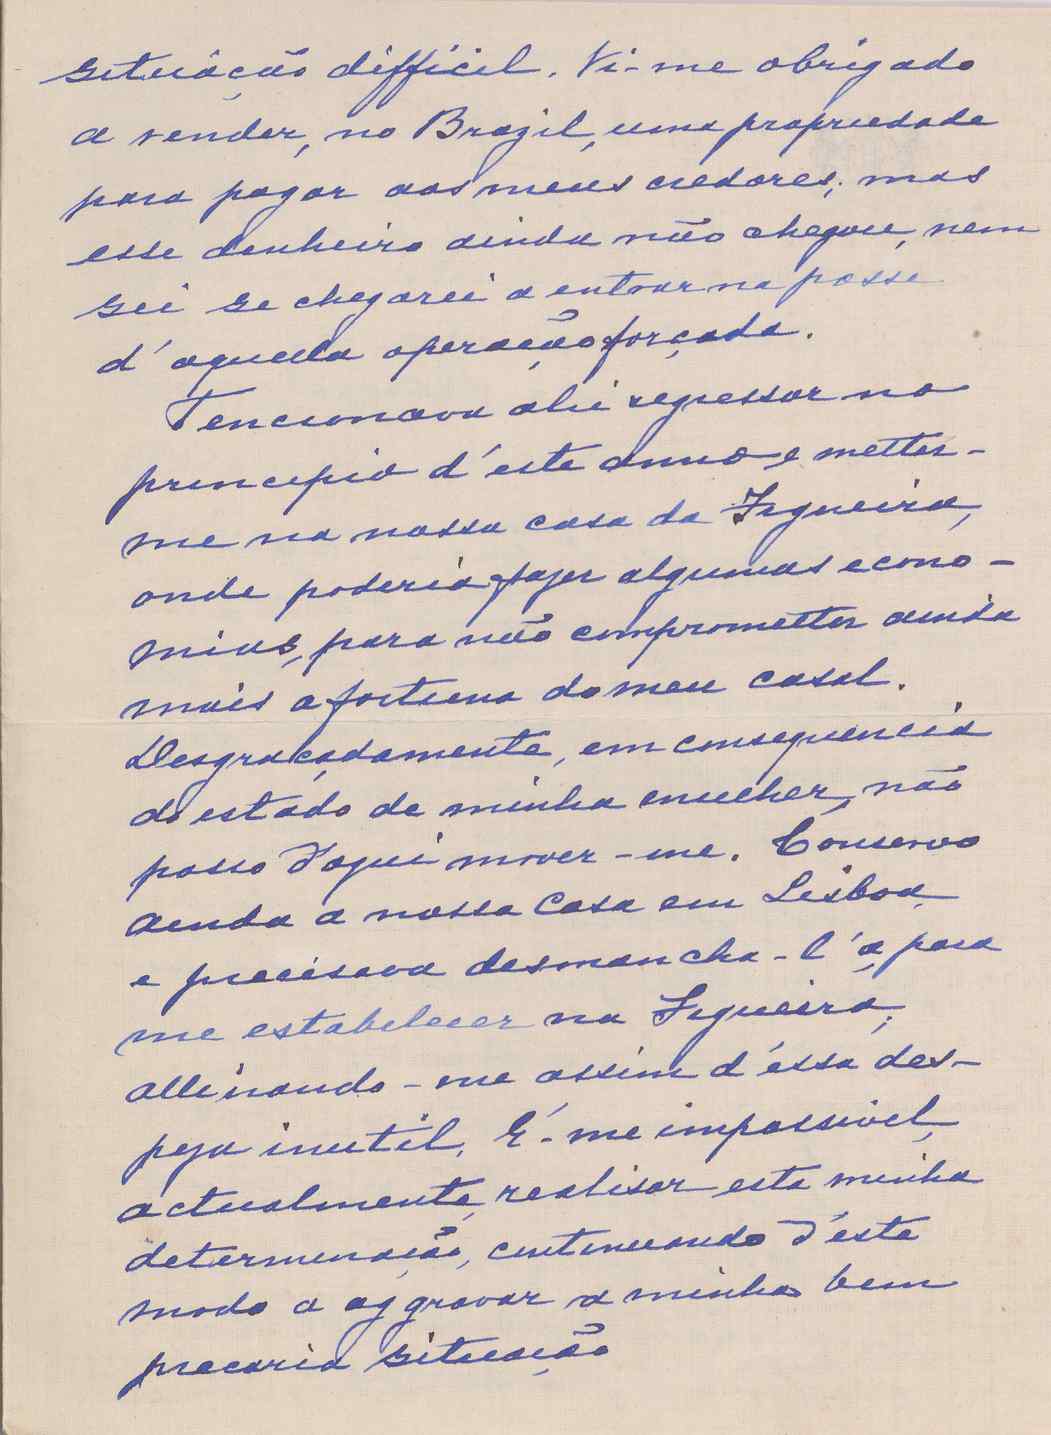 situação difficil. Vi-me obrigado
a vender, no Brazil, uma propriedade
para pagar aos meus credores; mas
esse dinheiro ainda não chegou, nem
sei se chegarei a entrar na posse
d'aquella operação forçada.
Tencionava ahi regressar no
principio d'este anno e metter-
me na nossa casa da Figueira,
onde poderia fazer algumas econo-
mias, para não comprometter ainda
mais a fortuna do meu casal.
Desgraçadamente, em consequencia
do estado de minha mulher, não
posso d'aqui mover-me. Conservo
ainda a nossa casa em Lisboa,
e precisava desmancha-l'a, para
me estabelecer na Figueira,
allinando-me assim d'essa des-
peza inutil. É-me impossivel,
actualmente, realisar esta minha
determinação, continuando d'este
modo a aggravar a minha bem
precaria situação